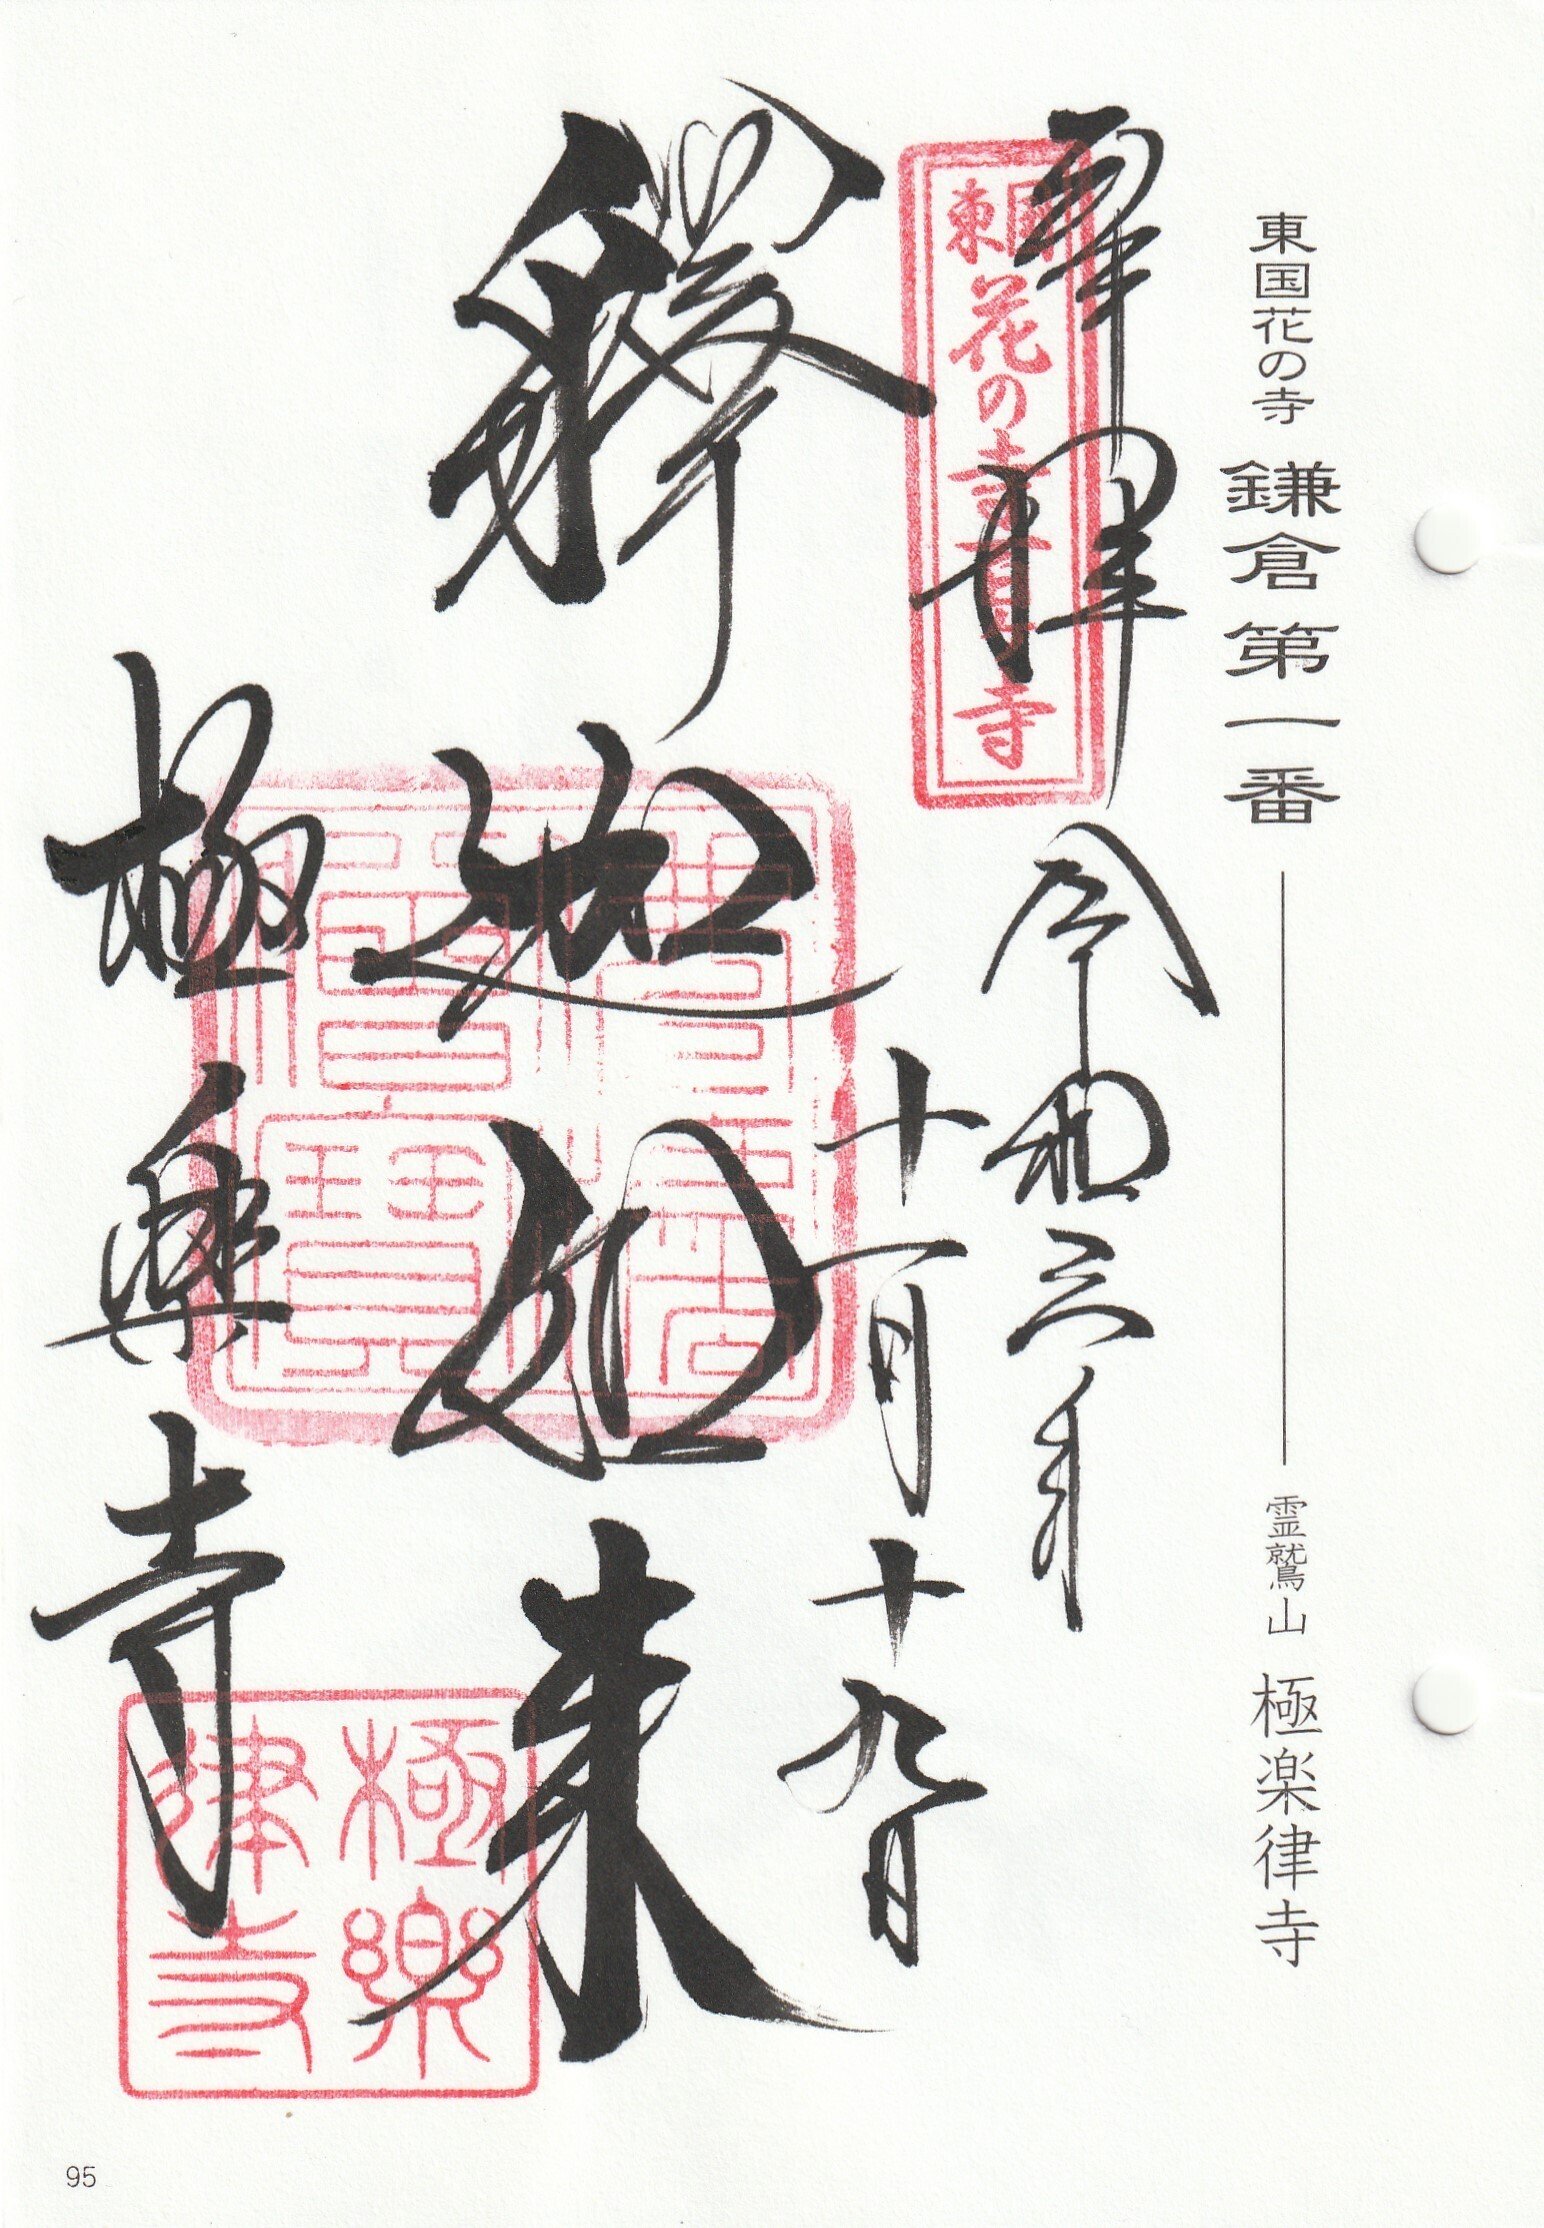 東国花の寺 鎌倉第一番 霊鷲山 極楽律寺
奉拝 令和三年
十一月十九日
東國花の寺百ヶ寺
釋迦如来
極樂寺
極樂
律寺
95